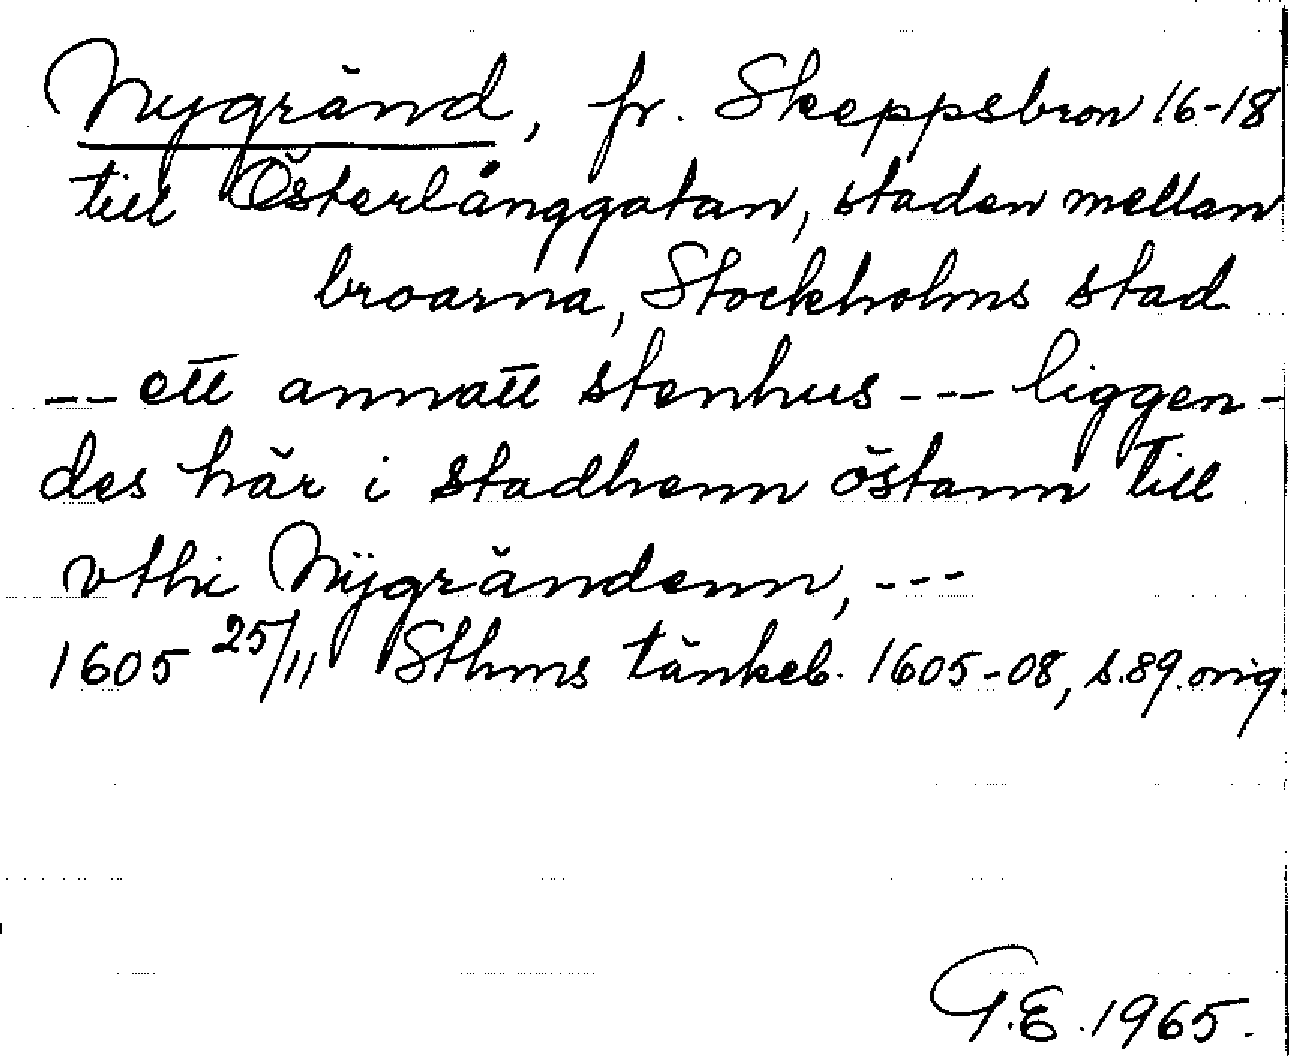 Nygränd, fr. Skeppsbron 16-18
till Österlånggatan, staden mellan
broarna, Stockholms stad
-- ett annatt stenhus --- liggen-
des här i stadhenn östann till
vthi Nÿgrändenn, ---
1605 25/11 Sthms tänkeb. 1605-08, s. 89. orig.
G.E. 1965.